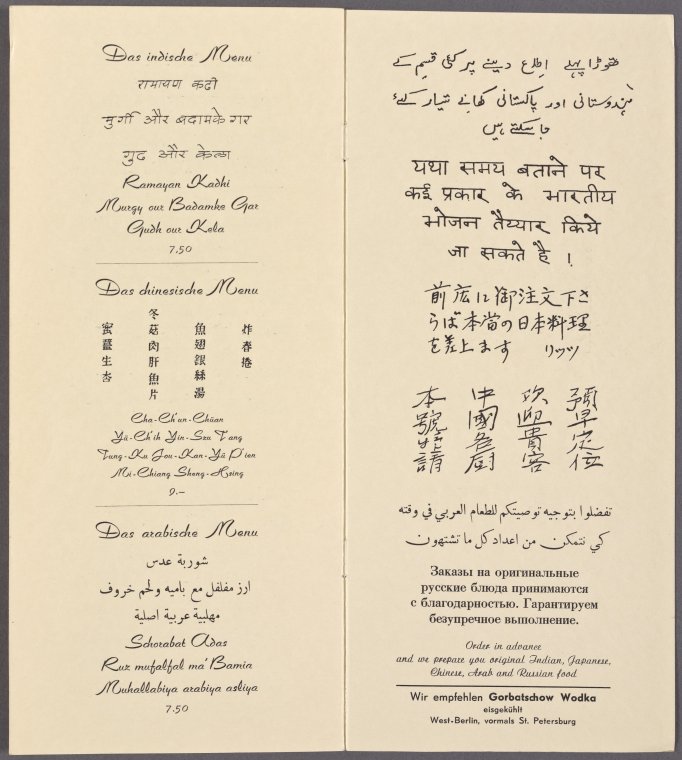 Das indische Menu
रामायण कढी
मुर्गी और बदामके गर
गुढ और केला
Ramayan Kadhi
Murgy our Badamke Gar
Gudh our Kela
7.50
Das chinesische Menu
炸春捲
魚翅銀絲湯
冬菇肉肝魚片
蜜薑生杏
Cha-Ch'un-Chüan
Yü-Ch'ih Yin-Szu T'ang
Tung-Ku Jou-Kan-Yü P'ien
Mi-Chiang Sheng-Hsing
9.–
Das arabische Menu
شوربة عدس
ارز مفلفل مع باميه ولحم خروف
مهلبية عربية اصلية
Schorabat Adas
Ruz mufalfal ma' Bamia
Muhallabiya arabiya asliya
7.50
تھوڑا پہلے اطلاع دینے پر کئی قسم کے
ہندوستانی اور پاکستانی کھانے تیار کئے
جا سکتے ہیں
यथा समय बताने पर
कई प्रकार के भारतीय
भोजन तैय्यार किये
जा सकते है !
前広に御注文下さ
らば本当の日本料理
を差上ます リッツ
預早定位
歡迎貴客
中國名厨
本號特請
تفضلوا بتوجيه توصيتكم للطعام العربي في وقته
كي نتمكن من اعداد كل ما تشتهون
Заказы на оригинальные
русские блюда принимаются
с благодарностью. Гарантируем
безупречное выполнение.
Order in advance
and we prepare you original Indian, Japanese,
Chinese, Arab and Russian food
Wir empfehlen Gorbatschow Wodka
eisgekühlt
West-Berlin, vormals St. Petersburg